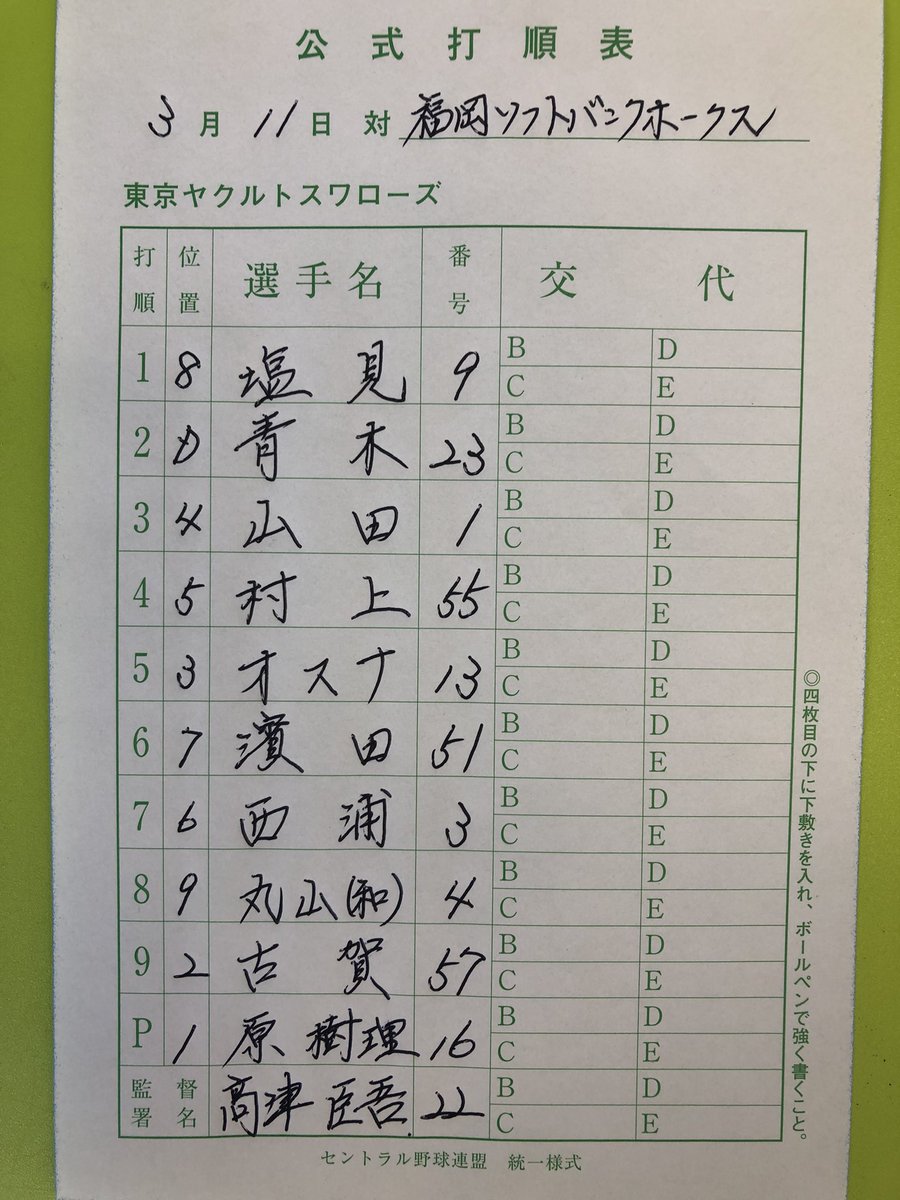 公式打順表
3月11日 対 福岡ソフトバンクホークス
東京ヤクルトスワローズ
打順 位置 選手名 番号 交代
1 8 塩見 9 B D C E
2 D 青木 23 B D C E
3 4 山田 1 B D C E
4 5 村上 55 B D C E
5 3 オスナ 13 B D C E
6 7 濱田 51 B D C E
7 6 西浦 3 B D C E
8 9 丸山(和) 4 B D C E
9 2 古賀 57 B D C E
P 1 原樹理 16 B D C E
監督署名 高津臣吾 22 B D C E
◎四枚目の下に下敷きを入れ、ボールペンで強く書くこと。
セントラル野球連盟 統一様式